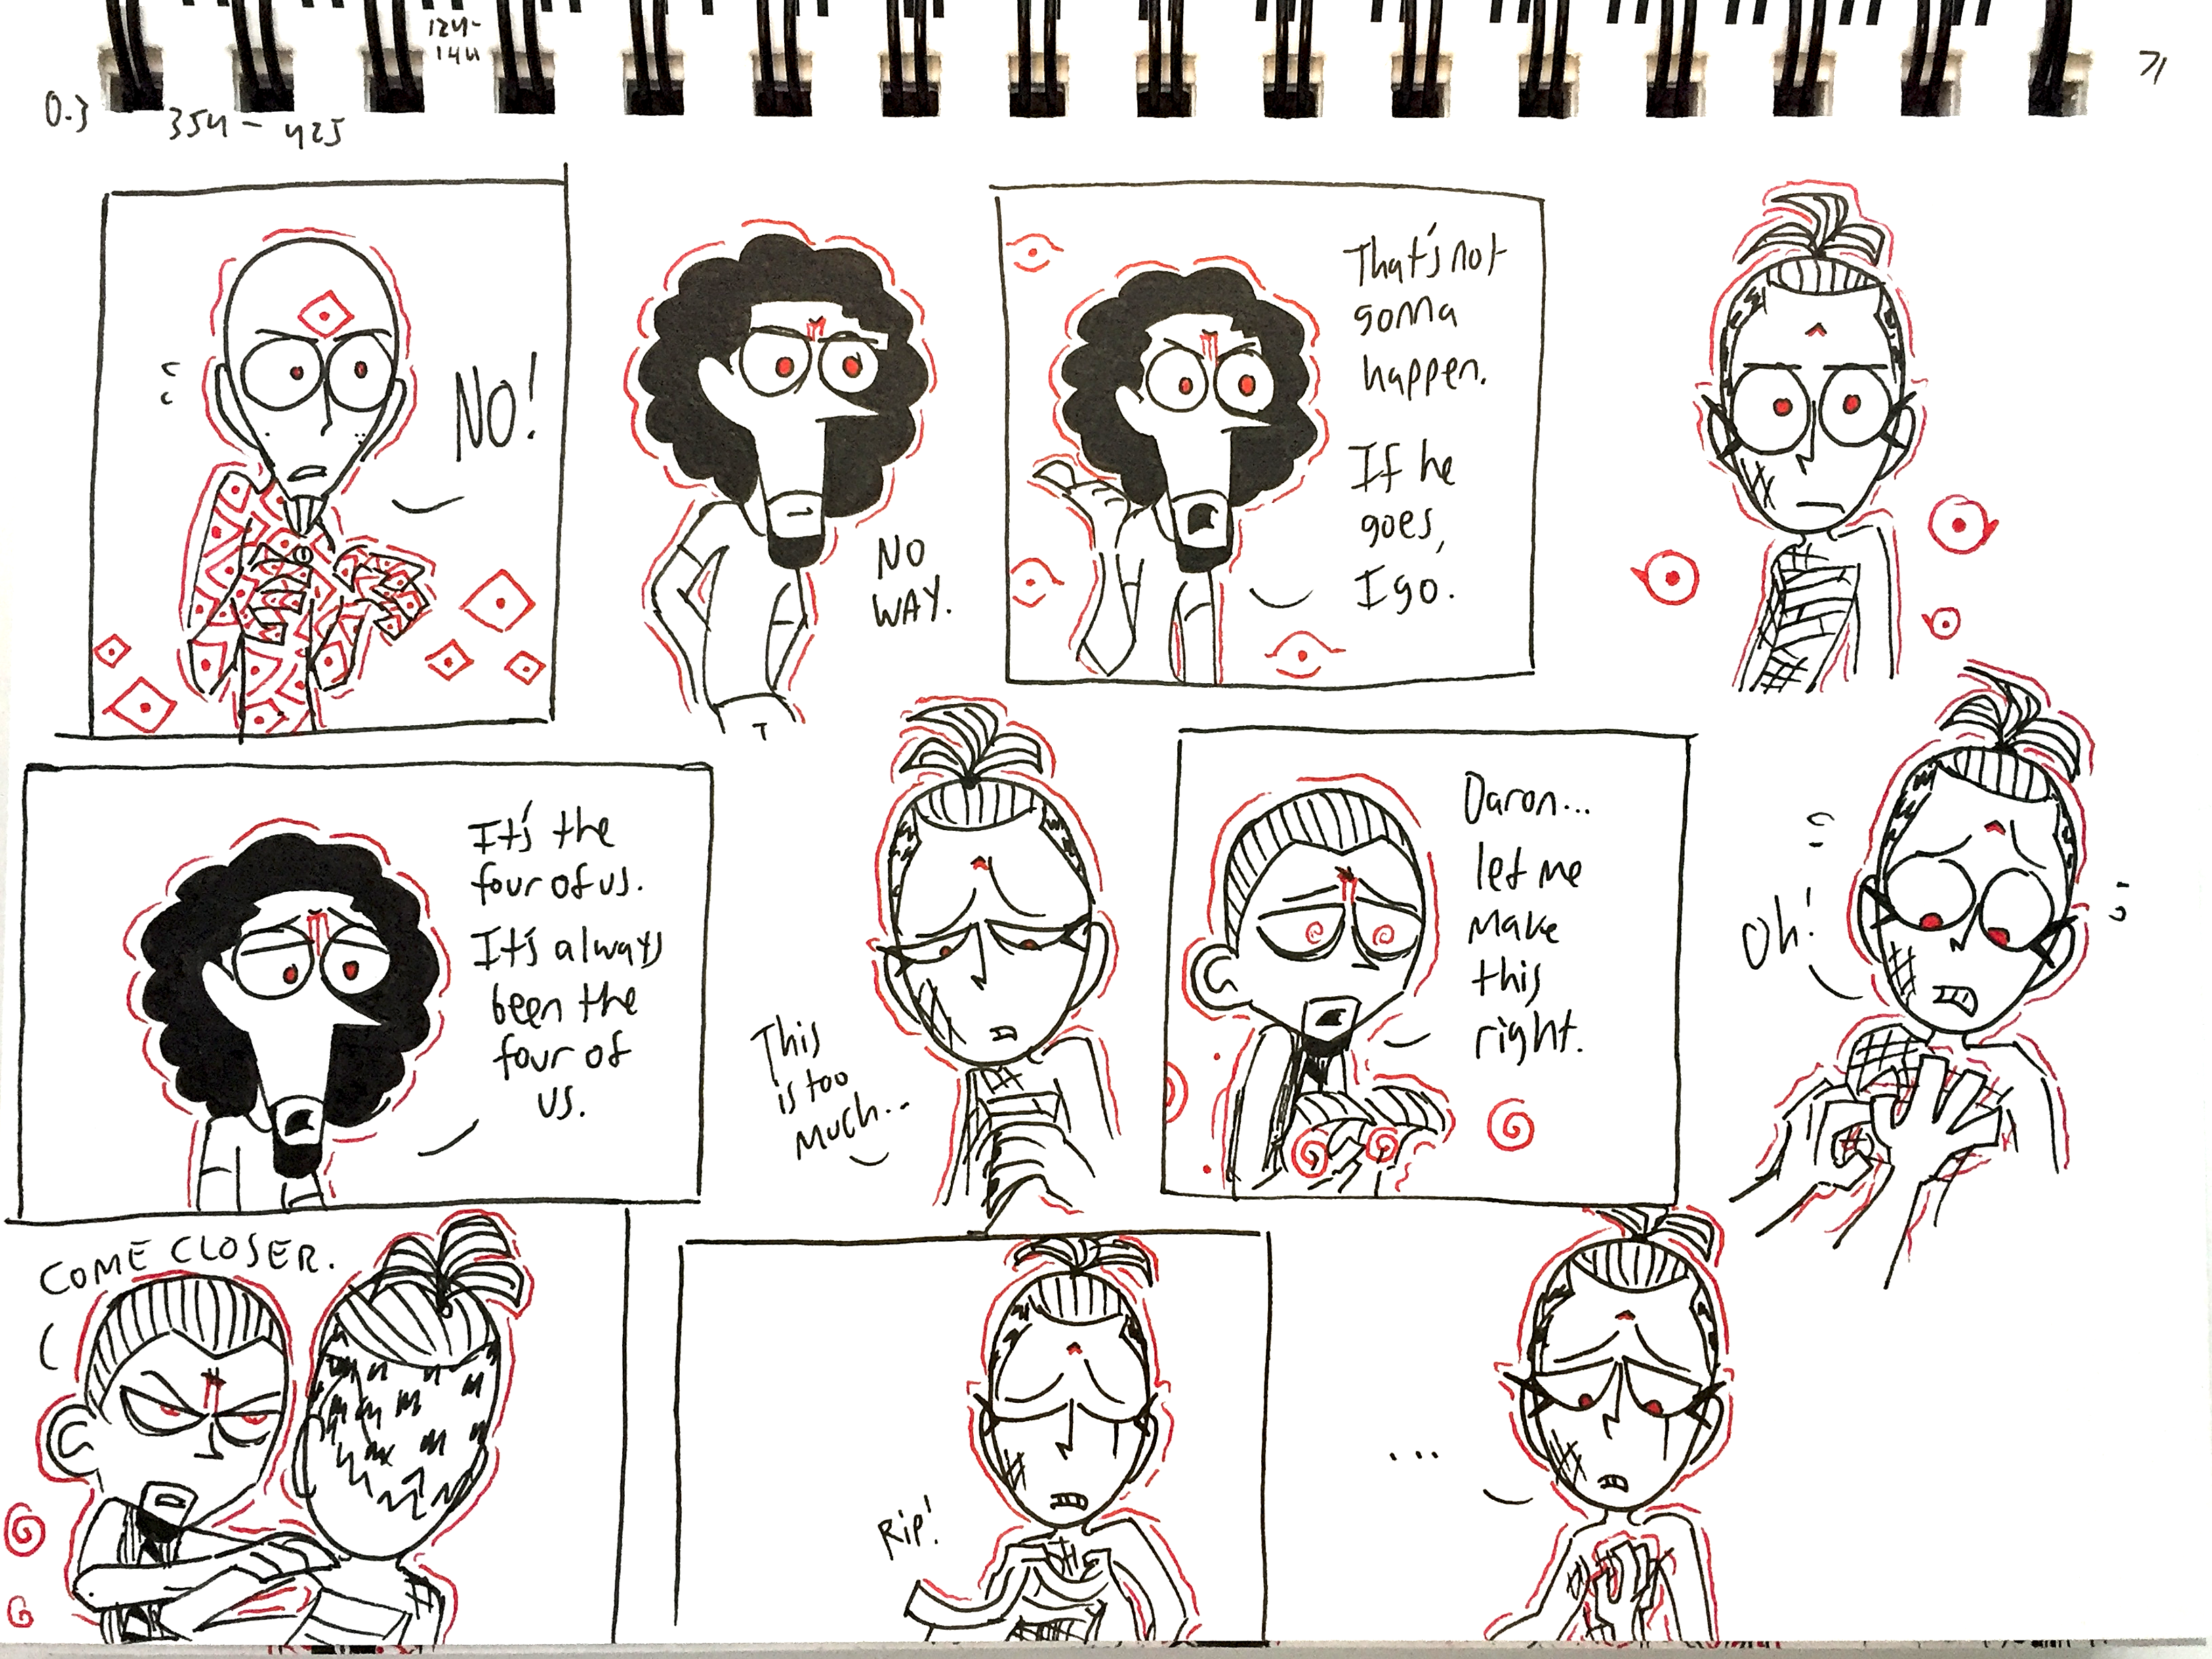 124-
144
0.3
354 - 425
71
NO!
NO
WAY.
That's not
gonna
happen.
If he
goes,
I go.
It's the
four of us.
It's always
been the
four of
us.
This
is too
much...
Daron...
let me
make
this
right.
Oh!
COME CLOSER.
Rip!
...